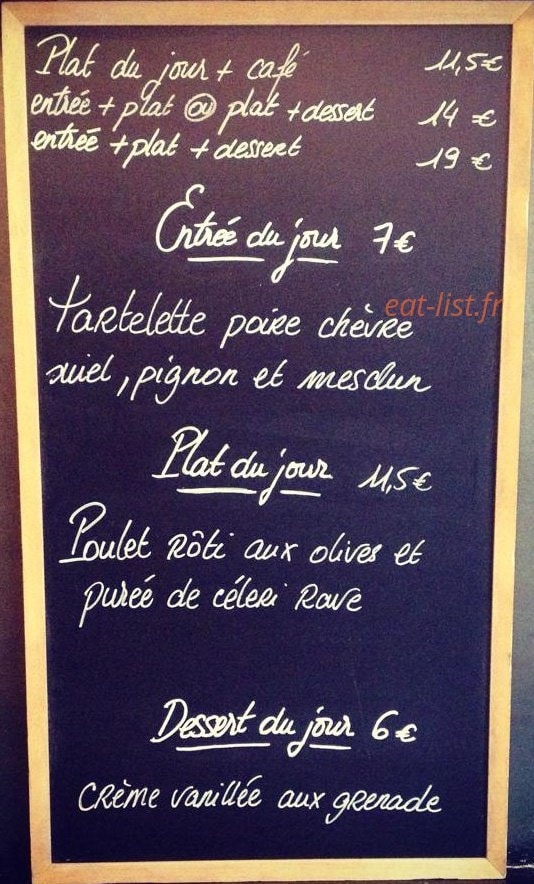 Plat du jour + café 11,5€
entrée + plat ou plat + dessert 14 €
entrée + plat + dessert 19 €
Entrée du jour 7€
eat-list.fr
Tartelette poire chèvre
miel, pignon et mesclun
Plat du jour 11,5€
Poulet Rôti aux olives et
purée de céleri Rave
Dessert du jour 6€
CRème vanillée aux gRenade